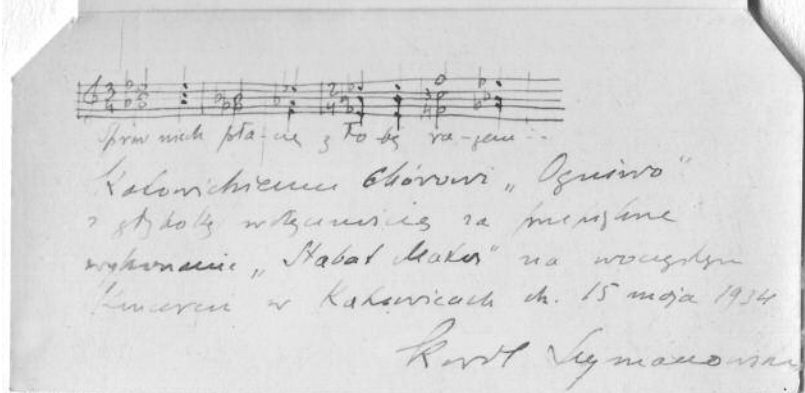 Spraw niech pła-czę z To-bą ra-zem...
Katowickiemu Chórowi „Ogniwo”
z głęboką wdzięcznością za przepiękne
wykonanie „Stabat Mater” na uroczystym
Koncercie w Katowicach dn. 15 maja 1934
Karol Szymanowski